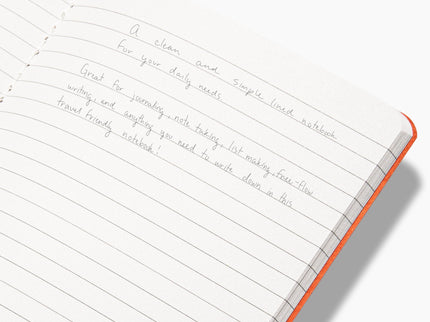 A clean and simple lined notebook
for your daily needs.
Great for journaling, note taking, list making, free-flow
writing and anything you need to write down in this
travel friendly notebook!